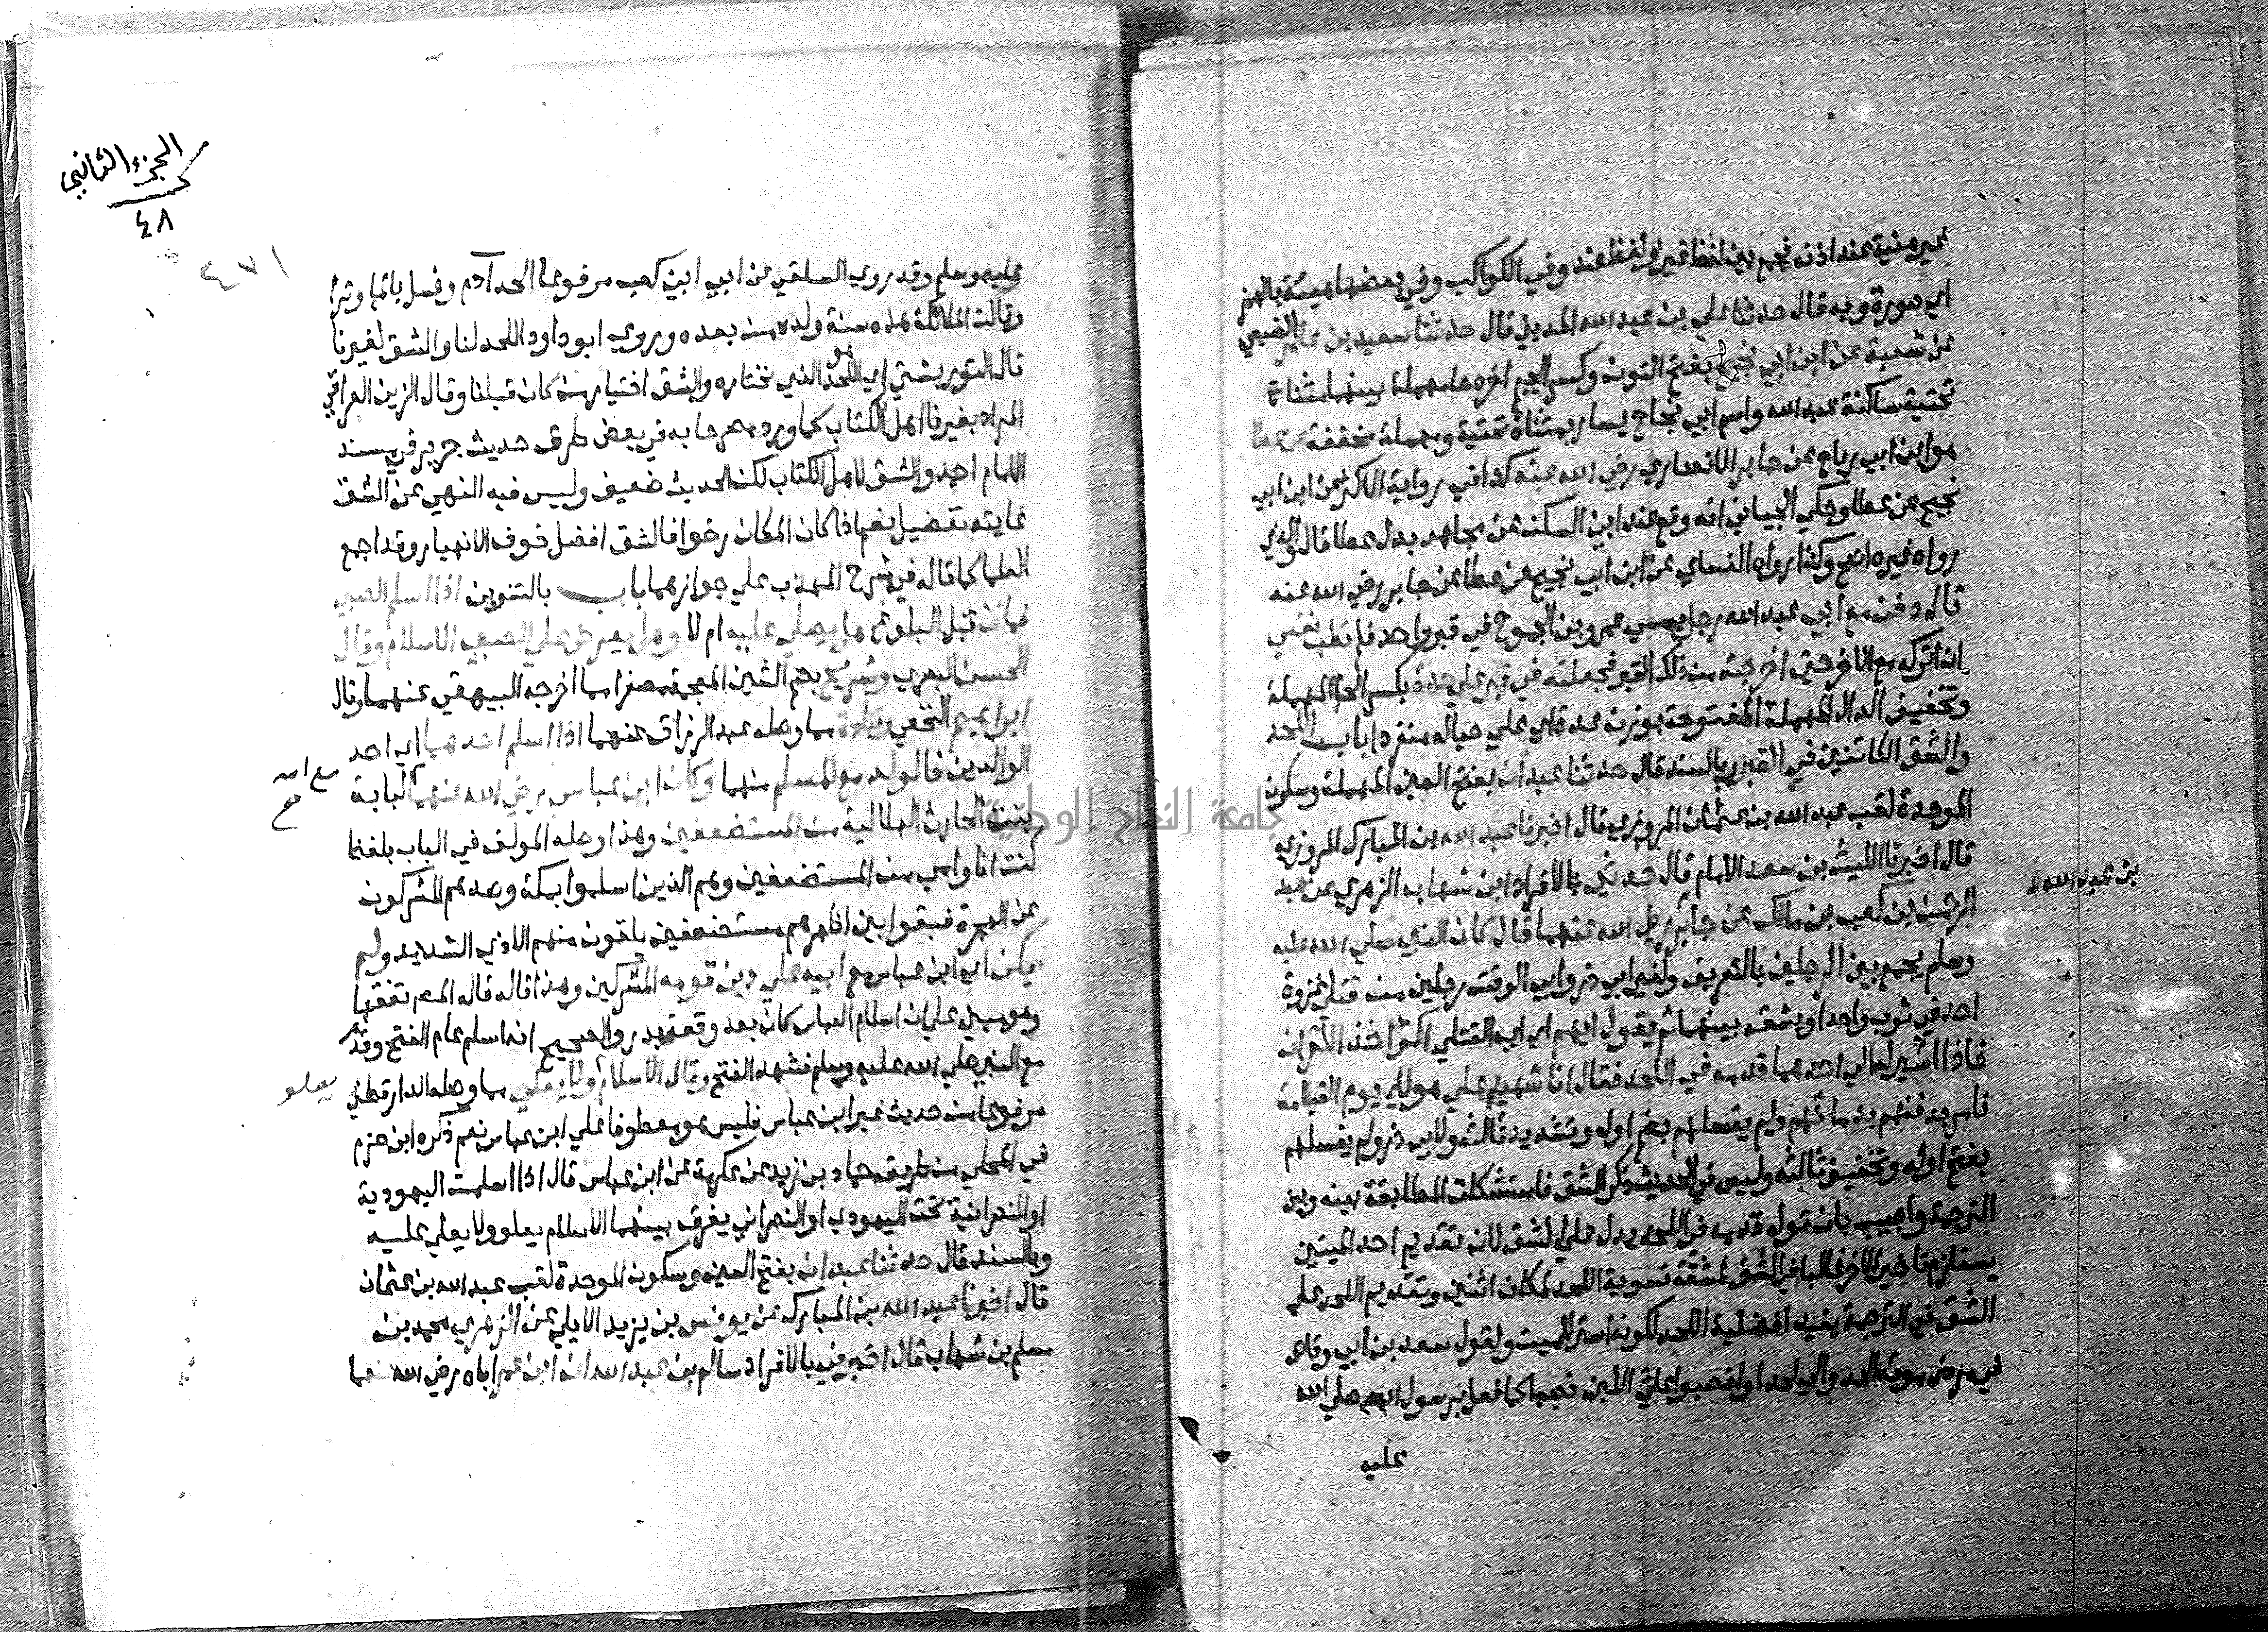 غير هنية عند اذنه فجمع بين لفظ غير ولفظ عند وفي الكواكب وفي بعضها هيئة بالهمز
اي صورة وبه قال حدثنا علي بن عبد الله المديني قال حدثنا سعيد بن عامر الضبعي
عن شعبة عن ابن ابي نجيح بفتح النون وكسر الجيم اخره حا مهملة بينهما مثناة
تحتية ساكنة عبد الله واسم ابي نجاح يسار بمثناة تحتية ومهملة مخففة عن عطا
هو ابن ابي رباح عن جابر الانصاري رضي الله عنه كذا في رواية الاكثر عن ابن ابي
نجيح عن عطا وحكي الجياني انه وقع عند ابن السكن عن مجاهد بدل عطا قال والذي
رواه غيره اصح وكذا رواه النسائي عن ابن ابي نجيح عن عطا عن جابر رضي الله عنه
قال دفن مع ابي عبد الله رجل يسمي عمرو بن الجموح في قبر واحد فلم تطب نفسي
ان اتركه مع الاخر حتي اخرجته من ذلك القبر فجعلته في قبر علي حدة بكسر الحا المهملة
وتخفيف الدال المهملة المفتوحة بوزن عدة اي علي حياله منفردا باب اللحد
والشق الكائنين في القبر وبالسند قال حدثنا عبدان بفتح العين المهملة وسكون
الموحدة لقب عبد الله بن عثمان المروزي قال اخبرنا عبد الله بن المبارك المروزي
قال اخبرنا الليث بن سعد الامام قال حدثني بالافراد ابن شهاب الزهري عن عبد
الرحمن بن كعب بن مالك عن جابر رضي الله عنهما قال كان النبي صلي الله عليه
بن عبد الله
وسلم يجمع بين الرجلين بالتعريف ولغير ابي ذر وابي الوقت رجلين من قتلي غزوة
احد في ثوب واحد او يشقه بينهما ثم يقول ايهم اي اي القتلي اكثر اخذا للقران
فاذا اشير له الي احدهما قدمه في اللحد فقال انا شهيد علي هولاء يوم القيامة
فامر بدفنهم بدمائهم ولم يغسلهم بضم اوله وتشديد ثالثه ولابي ذر ولم يغسلهم
بفتح اوله وتخفيف ثالثه وليس في الحديث ذكر الشق فاستشكلت المطابقة بينه وبين
الترجمة واجيب بان قوله قدمه في اللحد يدل علي الشق لان تقديم احد الميتين
يستلزم تاخير الاخر غالبا في الشق لمشقة تسوية اللحد لمكان اثنين وتقديم اللحد علي
الشق في الترجمة يفيد افضلية اللحد لكونه استر للميت ولقول سعد بن ابي وقاص
في مرض موته الحدوا لي لحدا وانصبوا علي اللبن نصبا كما فعل برسول الله صلي الله
عليه
الجزء الثاني
٤٨
٤٧١
عليه وسلم وقد روي السلفي عن ابي ابن كعب مرفوعا الحد آدم وغسل بالما وترا
وقالت الملائكة هذه سنة ولده من بعده وروي ابو داود اللحد لنا والشق لغيرنا
قال التوربشتي اي اللحد هو الذي نختاره والشق اختيار من كان قبلنا وقال الزين العراقي
المراد بغيرنا اهل الكتاب كما ورد مصرحا به في بعض طرق حديث جرير في مسند
الامام احمد والشق لاهل الكتاب لكن الحديث ضعيف وليس فيه النهي عن الشق
غايته تفضيل نعم اذا كان المكان رخوا فالشق افضل خوف الانهيار وقد اجمع
العلما كما قاله في شرح المهذب علي جوازهما باب بالتنوين اذا اسلم الصبي
فمات قبل البلوغ هل يصلي عليه ام لا وهل يعرض علي الصبي الاسلام وقال
الحسن البصري وشريح بضم الشين المعجمة مصغرا مما اخرجه البيهقي عنهما وقال
ابراهيم النخعي وقتادة مما وصله عبد الرزاق عنهما اذا اسلم احدهما اي احد
الوالدين فالولد مع المسلم منهما وكان ابن عباس رضي الله عنهما لبابة
مع امه
صح
بنت الحارث الهلالية من المستضعفين وهذا وصله المولف في الباب بلفظ
كنت انا وامي من المستضعفين وهم الذين اسلموا بمكة وصدهم المشركون
عن الهجرة فبقوا بين اظهرهم مستضعفين يلقون منهم الاذي الشديد ولم
يكن اي ابن عباس مع ابيه علي دين قومه المشركين وهذا قاله المص تفقها
وهو مبني علي ان اسلام العباس كان بعد وقعة بدر والصحيح انه اسلم عام الفتح وقدم
مع النبي صلي الله عليه وسلم فشهد الفتح وقال الاسلام ولا يعلي مما وصله الدارقطني
يعلو
مرفوعا من حديث غير ابن عباس فليس هو معطوفا علي ابن عباس نعم ذكره ابن حزم
في المحلي من طريق حماد بن زيد عن عكرمة عن ابن عباس قال اذا اسلمت اليهودية
او النصرانية تحت اليهودي او النصراني يفرق بينهما الاسلام يعلو ولا يعلي عليه
وبالسند قال حدثنا عبدان بفتح العين وسكون الموحدة لقب عبد الله بن عثمان
قال اخبرنا عبد الله بن المبارك عن يونس بن يزيد الايلي عن الزهري محمد بن
مسلم بن شهاب قال اخبرني بالافراد سالم بن عبد الله ان ابن عمر اباه رضي الله عنهما
جامعة النجاح الوطنية